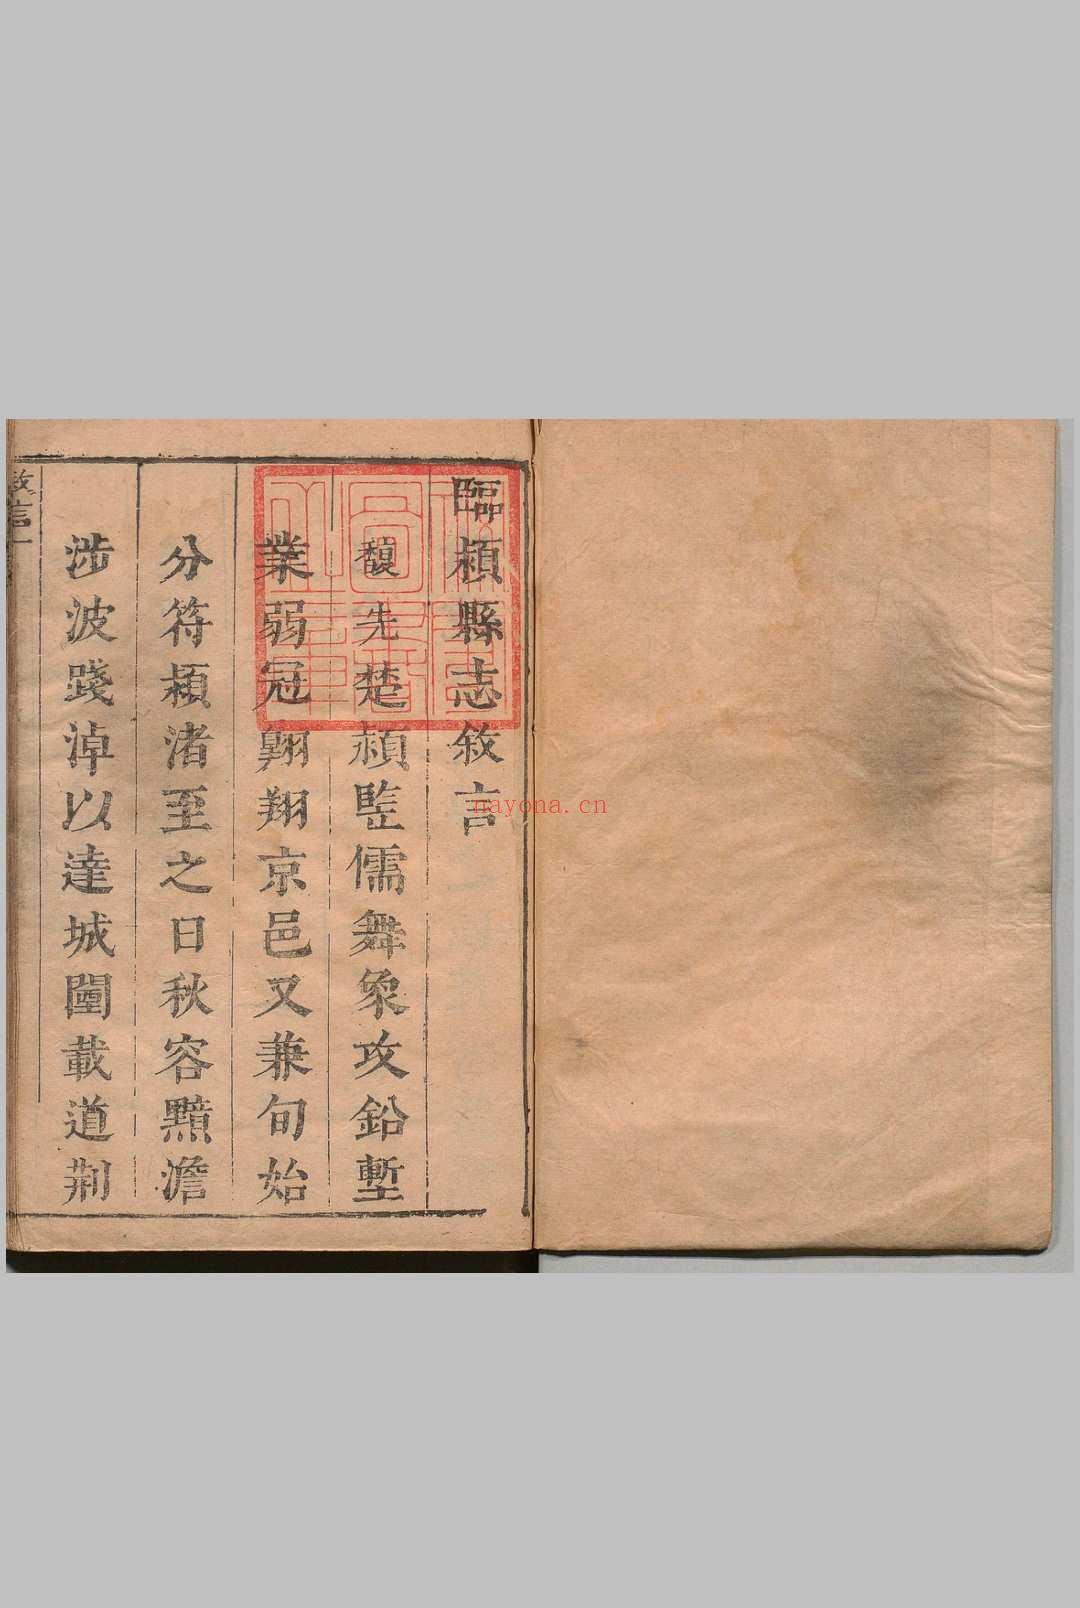 臨潁縣志敘言
馥先楚頳豎儒舞象攻鉛塹
業弱冠翺翔京邑又兼旬始
分符潁渚至之日秋容黯澹
涉波踐淖以達城闉載道荆
敘言一
nayona.cn